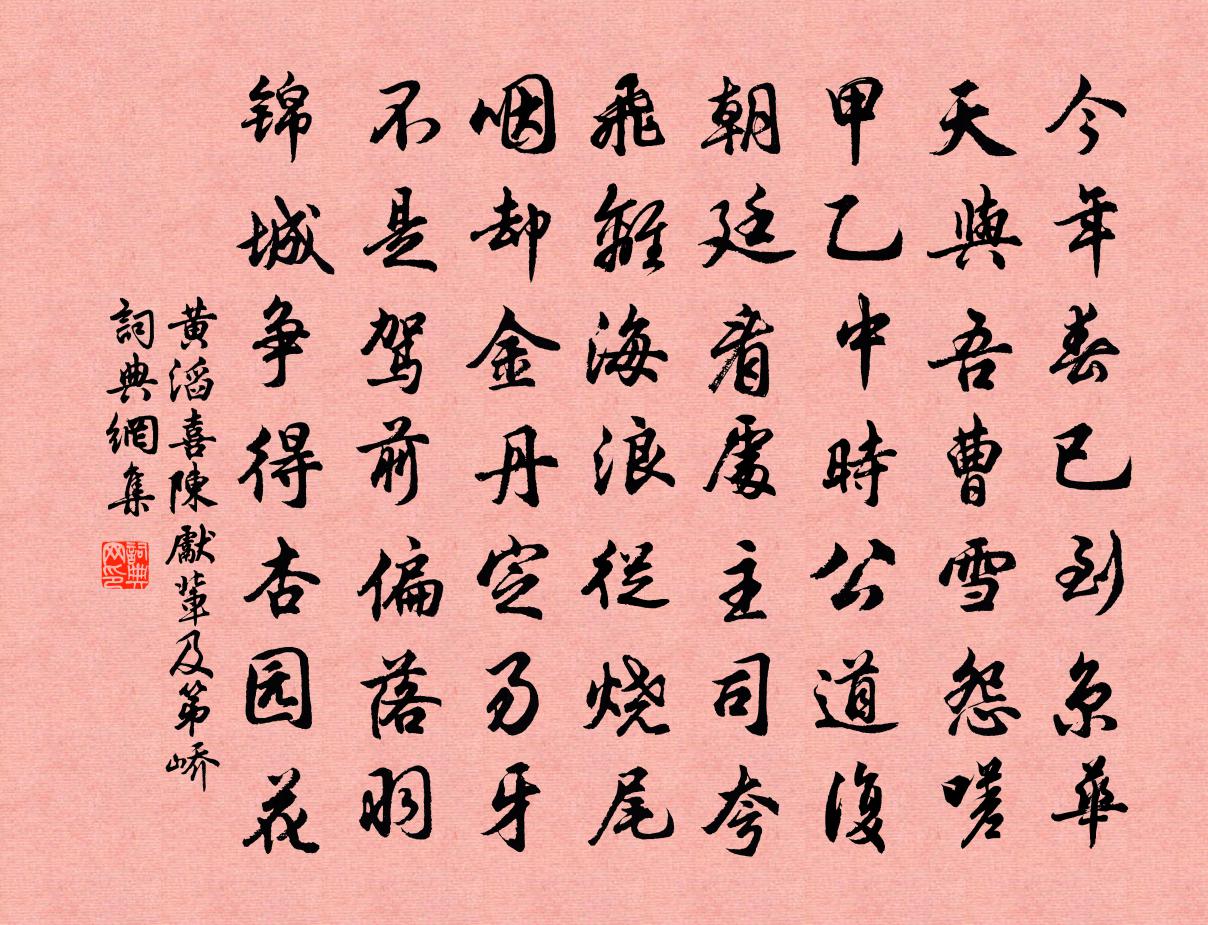 今年春已到京華
天與吾曹雪怨嗟
甲乙中時公道復
朝廷看處主司夸
飛離海浪從烧尾
咽却金丹定易牙
不是驾前偏落羽
锦城争得杏园花
黃滔喜陳獻輩及第峤
詞典網集
詞典网印